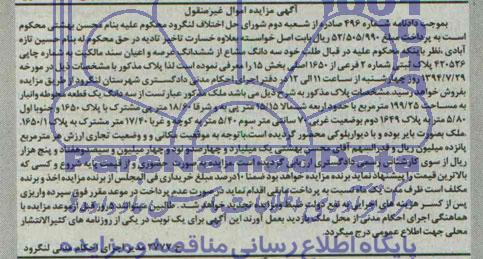 آگهی مزایده اموال غیرمنقول
بموجب دادنامه شماره ۴۹۶ صادره از شعبه دوم شورای حل اختلاف لنگرود محکوم علیه بنام محسن بهشتی محکوم
است به پرداخت مبلغ ۵۲/۵۰۵/۹۹۰ ریال بابت اصل خواسته بعلاوه خسارت تاخیر تادیه در حق محکوم له بنام حسین تازه
آبادی نظر باینکه محکوم علیه در قبال طلب خود سه دانگ مشاع از ششدانگ عرصه و اعیان سند مالکیت به شماره چاپی
۴۲۰۵۲۶ پلاک ثبتی شماره ۲ فرعی از ۱۶۵۰ اصلی بخش ۱۵ را معرفی نموده است لذا پلاک مذکور با مشخصات ذیل در مورخه
۱۲۹۴/۷/۲۹ روز چهارشنبه از ساعت ۱۱ الی ۱۲ در دفتر اجرای احکام مدنی دادگستری شهرستان لنگرود از طریق مزایده
بفروش خواهد رسید مشخصات پلاک مذکور به شرح ذیل می باشد ملک مذکور عبارتست از سه دانگ یک قطعه محوطه وانبار
به مساحت ۱۹۹/۲۵ مترمربع با حدود اربعه شمالا ۱۵/۱۵ متر
۵/۸۰ متر به پلاک ۱۶۴۹ دوم بوضعیت غربی ۷۰ سانتی متر سوم ۵/۴۰ متر به کوچه غربا ۱۷/۴۰ متر مشترک به پلاک ۱۶۵۰/۱
ملک بصورت بایر بوده و با دیواربلوکی محصور گردیده است با توجه به موقعیت مکانی و وضعیت تجاری ارزش هر مترمربع
پانزده میلیون ریال و قدرالسهم آقای محسن بهشتی یک میلیارد و چهارصد و نود و چهار میلیون و سیصد و هفتاد و پنج هزار
ریال از سوی کارشناس رسمی دادگستری ارزیابی گردیده است مزایده به صورت حضوری و از قیمت پایه شروع و کسی که
بالاترین قیمت را پیشنهاد نماید برنده مزایده خواهد بود ضمنا ۱۰ درصد مبلغ خریداری فی المجلس از برنده مزایده اخذ و برنده
مکلف است ظرف مدت یکماه نسبت به پرداخت مابقی اقدام نماید در صورت عدم پرداخت در موعد مقرر فوق سپرده واریزی
پس از کسر هزینه های اجرایی به نفع دولت ضبط و مزایده تجدید خواهد شد
هماهنگی اجرای احکام مدنی از محل ملک بازدید بعمل آورند این آگهی برای یک نوبت در یکی از روزنامه های کثیرالانتشار
محلی جهت اطلاع عمومی درج میگردد
اجرای احکام مدنی لنگرود
پایگاه اطلاع رسانی مناقصه و مزایده